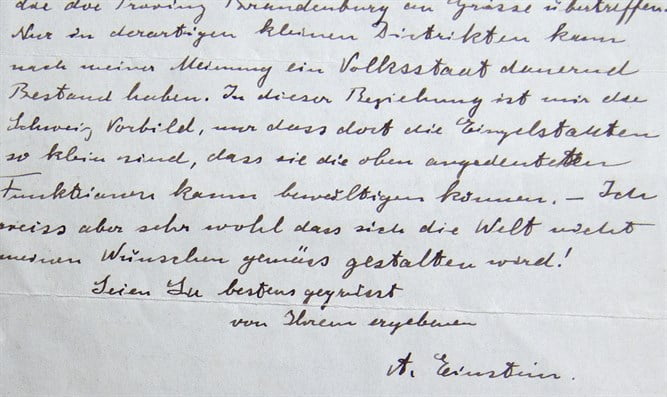 die die Provinz Brandenburg an Grösse übertreffen.
Nur in derartigen kleinen Distrikten kann
nach meiner Meinung ein Volksstaat dauernd
Bestand haben. In dieser Beziehung ist mir die
Schweiz Vorbild, nur dass dort die Einzelstaaten
so klein sind, dass sie die oben angedeuteten
Funktionen kaum bewältigen können. — Ich
weiss aber sehr wohl dass sich die Welt nicht
meinen Wünschen gemäss gestalten wird!
Seien Sie bestens gegrüsst
von Ihrem ergebenen
A. Einstein.